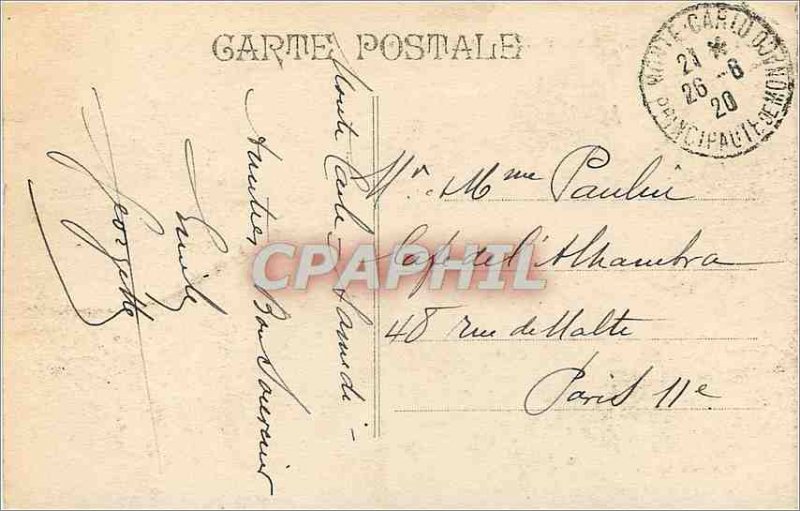 CARTE POSTALE
MONTE-CARLO
21 *
26 - 6
20
PRINCIPAUTE DE MONACO
Mr. Mme Paulin
Café de l'Alhambra
48 rue de Malte
Paris 11e
Monte Carlo - Samedi -
Bon Souvenir
Emile
Georgette
CPAPHIL